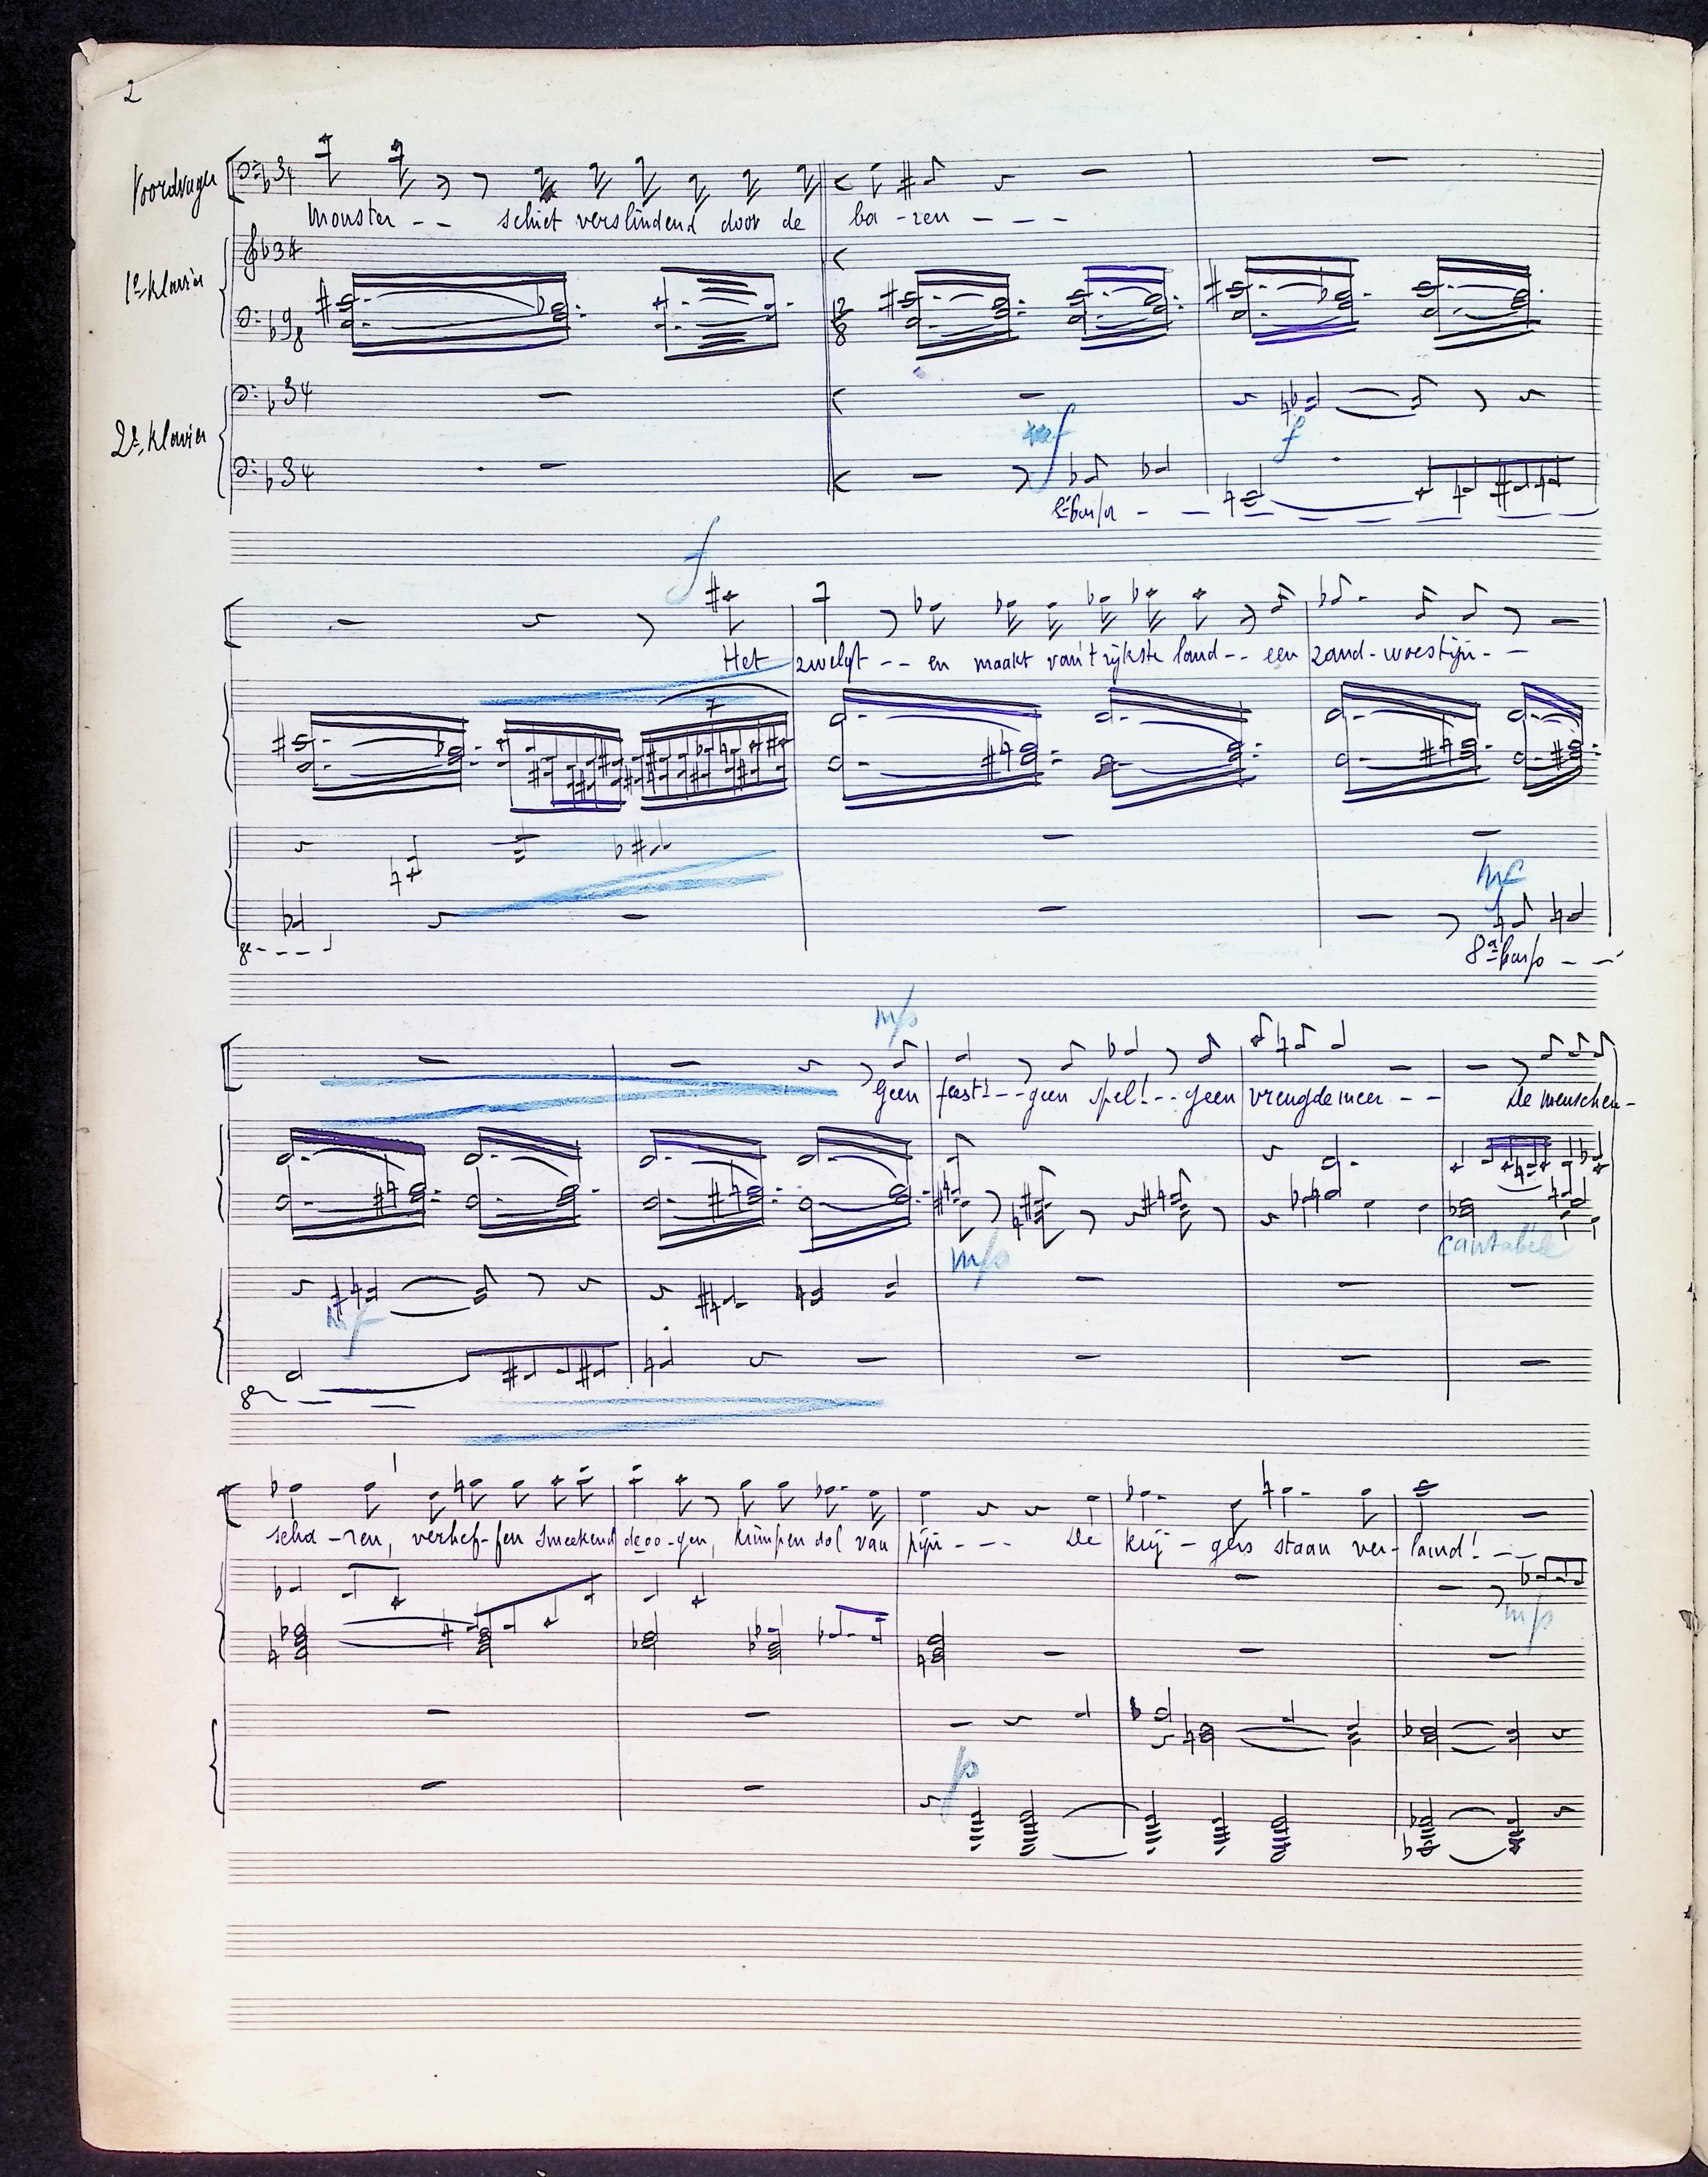 2
Voordrager
monster -- schiet verslindend door de ba-ren ---
1e klavier
2e klavier
mf
f
8a bassa
f
Het zwelgt -- en maakt van't rijkste land -- een zand-woestijn --
7
mf
8a bassa
8a
mp
Geen feest! -- geen spel! -- geen vreugde meer -- De menschen-
mp
cantabile
mf
8a
scha-ren, verhef-fen smeekend de oo-gen, krimpen dol van pijn --- De krij-gers staan ver-lamd! --
mp
p